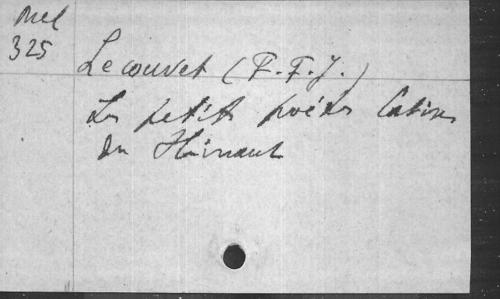 Mel
325
Lecouvet (F.F.J.)
Les petits poétes latins
du Hainaut